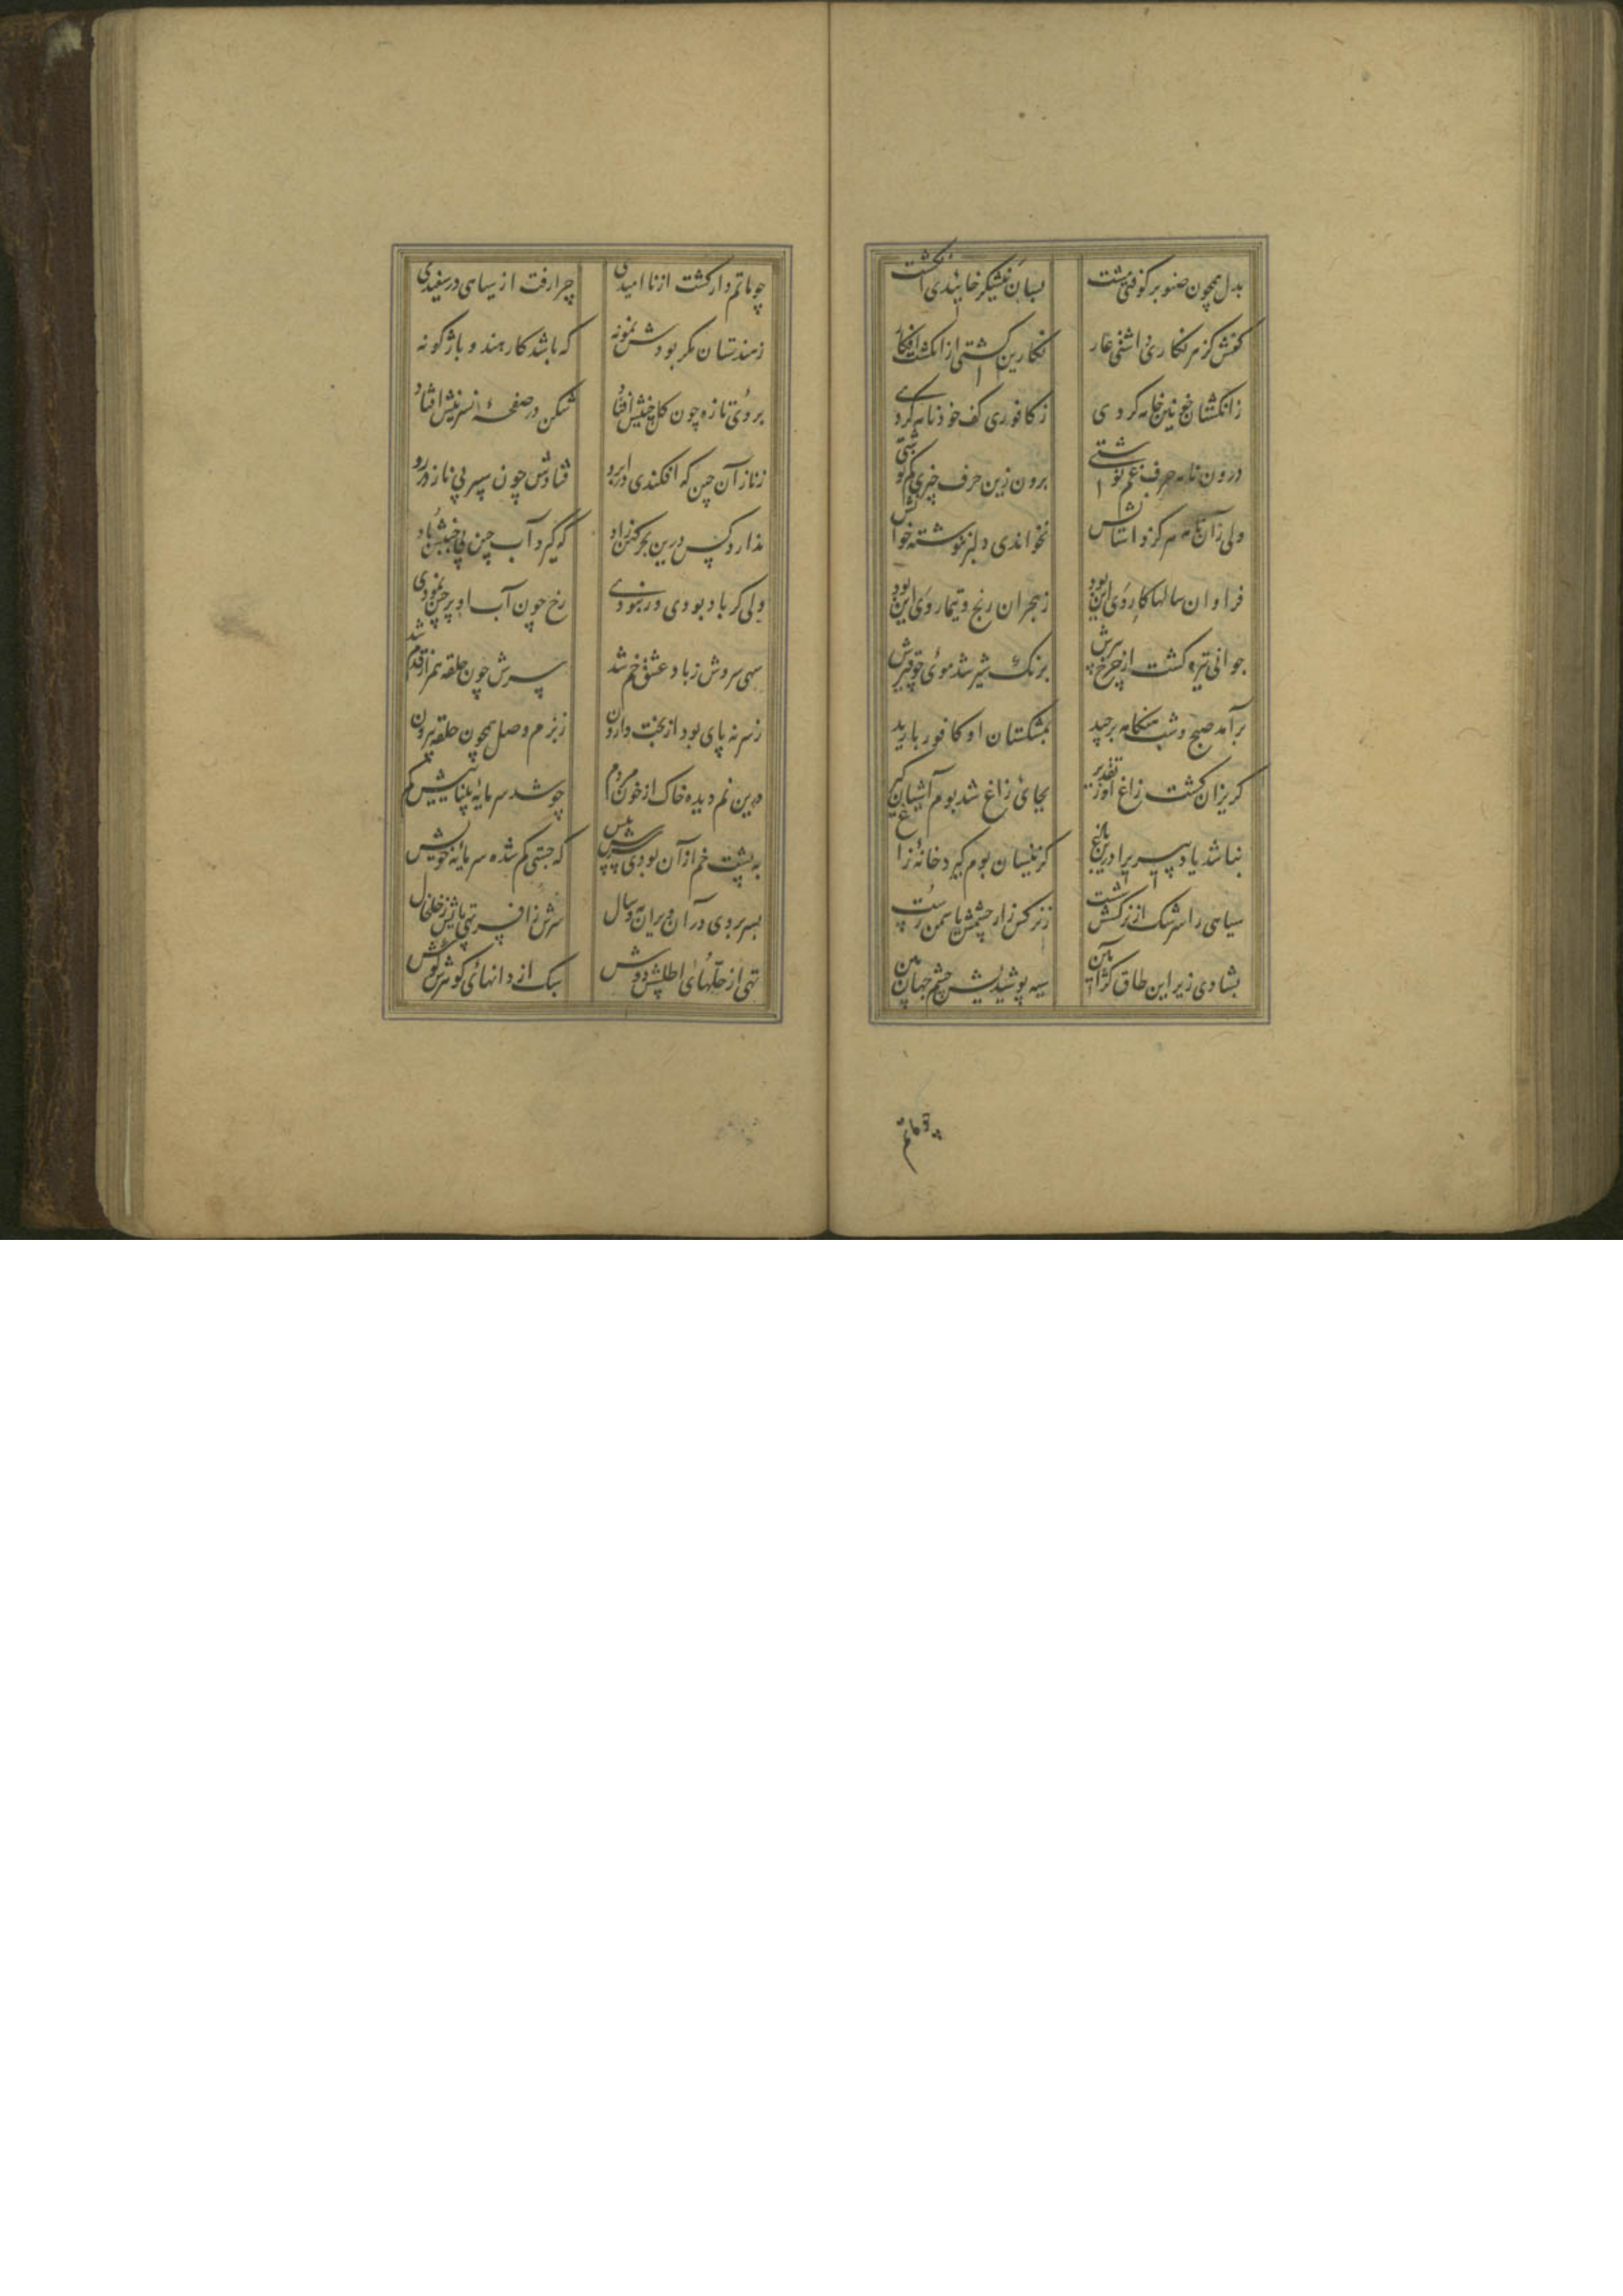 بدل همچون صنوبر کوفتی مشت بسان نیشکر خاییدی انگشت
کفش کز هر نگاری داشتی عار نگارین گشتی از انگشت افکار
ز انگشتان خونین خامه کردی ز کافوری کف خود نامه کردی
درون نامه حرف غم نوشتی برون زین حرف چیزی کم نوشتی
ولی زان نامه هرگز داستانش نخواندی دلبر ننوشته خوانش
فراوان سالها کار وی این بود ز هجران رنج و تیمار وی این بود
جوانی تیره گشت از چرخ پیرش برنگ شیر شد موی چو قیرش
برآمد صبح و شب هنگامه برچید بمشکستان او کافور بارید
گریزان گشت زاغ از تیر تقدیر بجای زاغ شد بوم آشیان گیر
نباشد یاد پیریرا درین باغ کزینسان بوم گیرد خانهٔ زاغ
سیاهی را سرشک از نرگسش شست ز نرگس زار چشمش یاسمن رست
بشادی زیر این طاق کژ آیین سیه پوشیدیش چشم جهان بین
چو ماتم
چو ماتم دار گشت از ناامیدی چرا رفت از سیاهی در سفیدی
ز هندستان مگر بودش نمونه که باشد کار هندو باژگونه
بروی تازه چون گل چینش افتاد شکن در صفحهٔ نسرینش افتاد
ز ناز آن چین که افکندی در ابرو فتادش چون سپر بی ناز در رو
ندارد کس درین بحر کهن یاد که گیرد آب چین بی جنبش باد
ولی گر باد بودی ور نبودی رخ چون آب او پر چین نمودی
سهی سروش ز باد عشق خم شد سرش چون حلقه همراز قدم شد
ز سر نه پای بود از بخت وارون ز بزم وصل همچون حلقه بیرون
درین نم دیده خاک از خون مردم چو شد سرمایهٔ بیناییش گم
به پشت خم از آن بودی سرش پیش که جستی گم شده سرمایهٔ خویش
بسر بردی در آن ویرانه مه و سال سرش ز افسر تهی پایش ز خلخال
تهی از حلهای اطلسش دوش سبک از دانهای گوهرش گوش